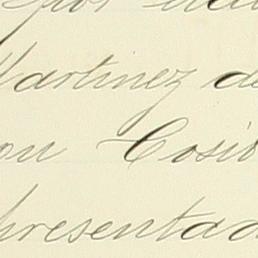 por
Martinez de
on Cosio
presentad